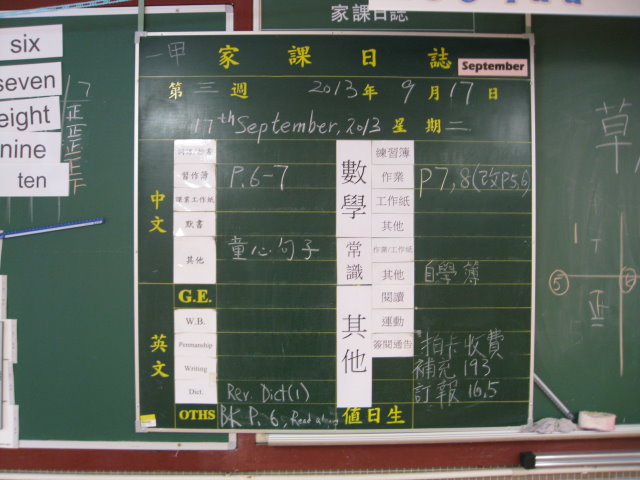 家課日誌
six
seven
eight
nine
ten
17
正
正
正
正
一甲
家課日誌
September
第三週
2013年9月17日
17th September, 2013 星期二
中文
習作簿 P.6-7
課業工作紙
默書
其他 童心句子
英文
G.E.
W.B.
Penmanship
Writing
Dict. Rev. Dict(1)
OTHS BK P. 6, Read
數學
練習簿
作業 P7,8(改P5,6)
工作紙
其他
常識
作業/工作紙
其他 自學簿
其他
閱讀
運動
簽閱通告
拍卡收費
補充 193
訂報 16.5
值日生
草
5
6
正